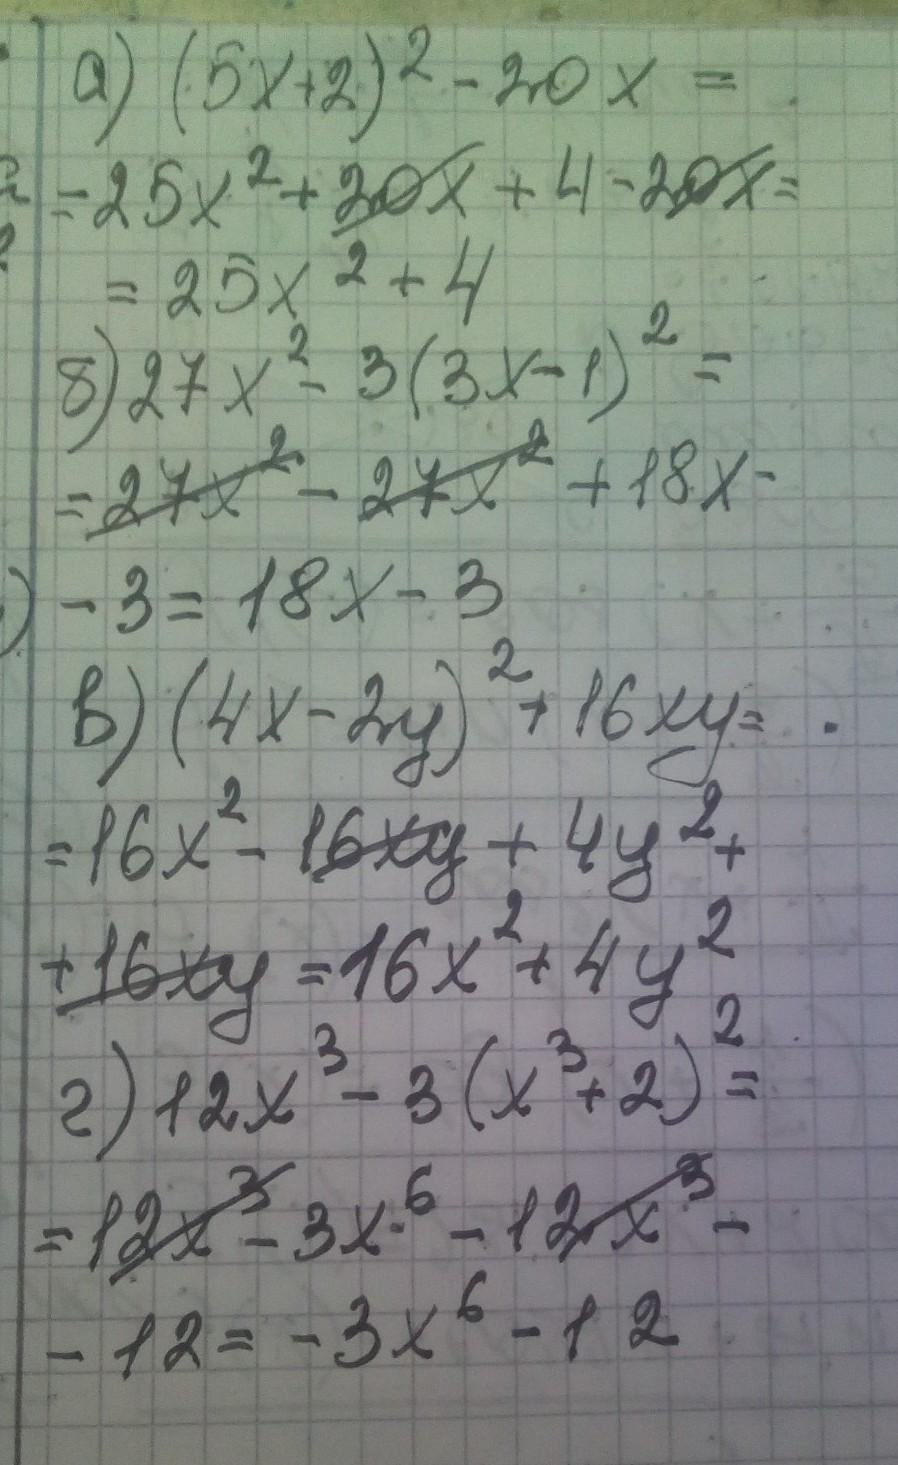 а) (5x+2)² - 20x =
= 25x² + 20x + 4 - 20x =
= 25x² + 4
б) 27x² - 3(3x-1)² =
= 27x² - 27x² + 18x -
- 3 = 18x - 3
в) (4x - 2y)² + 16xy =
= 16x² - 16xy + 4y² +
+ 16xy = 16x² + 4y²
г) 12x³ - 3(x³+2)² =
= 12x³ - 3x⁶ - 12x³ -
- 12 = -3x⁶ - 12